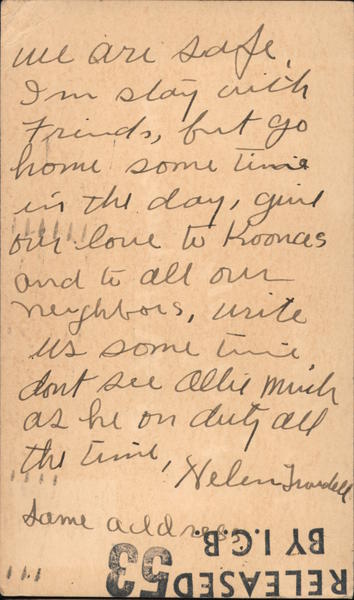 We are safe,
I'm stay with
Friends, but go
home some time
in the day, give
our love to Koonces
and to all our
neighbors, write
us some time,
dont see Ollie much
as he on duty all
the time,
Helen
same address
RELEASED
BY I.C.B.
53